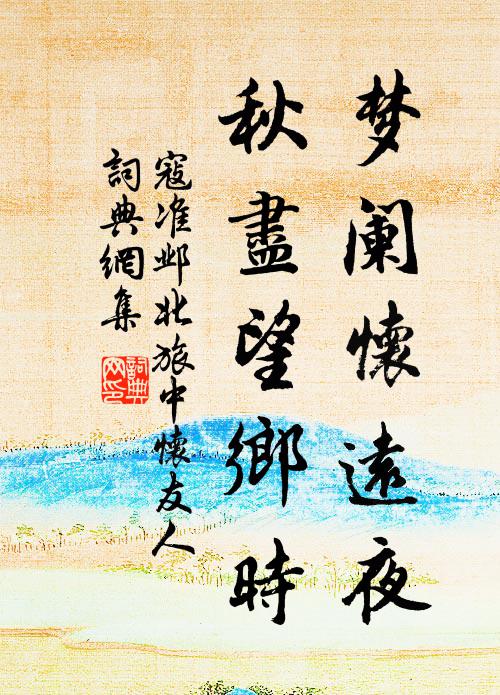 梦阑懷遠夜
秋盡望鄉時
寇准邺北旅中懷友人
詞典網集
詞典网印